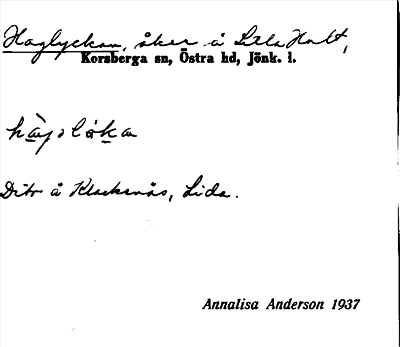 Haglyckan, åker å Lilla Hult,
Korsberga sn, Östra hd, Jönk. l.
Dito å Klackenås, Lida.
Annalisa Anderson 1937